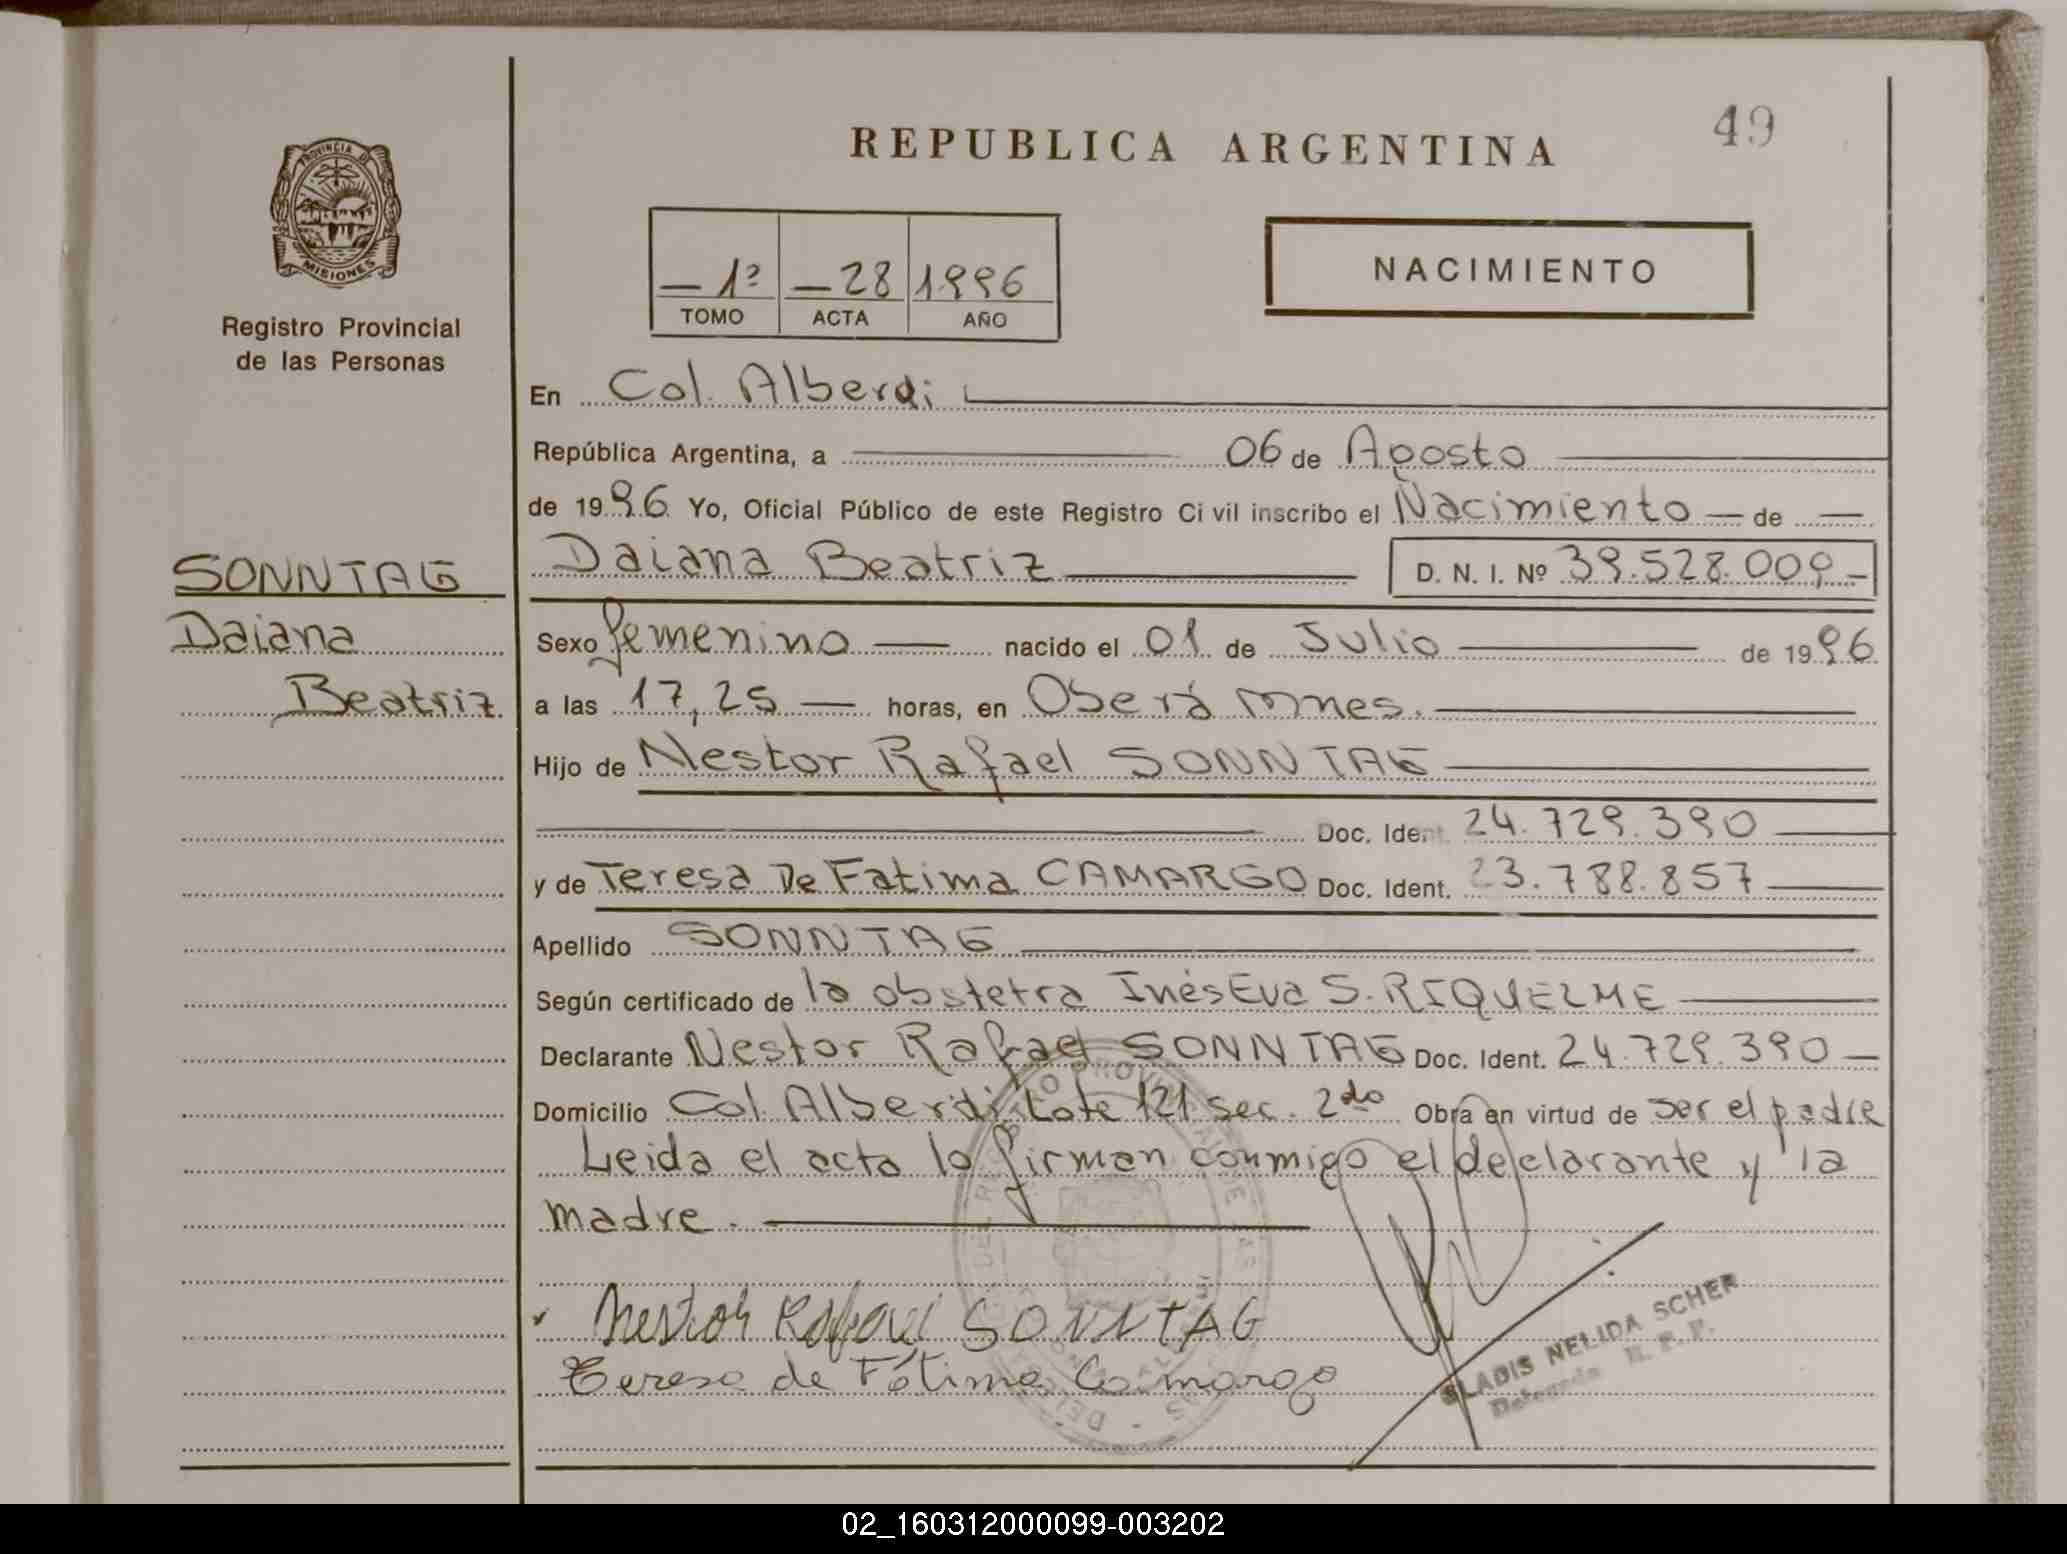 49
REPUBLICA ARGENTINA
PROVINCIA DE
MISIONES
Registro Provincial
de las Personas
1º 28 1996
TOMO ACTA AÑO
NACIMIENTO
En Col. Alberdi
República Argentina, a 06 de Agosto
de 1996 Yo, Oficial Público de este Registro Civil inscribo el Nacimiento de
Daiana Beatriz D. N. I. Nº 39.528.009
SONNTAG
Daiana
Beatriz
Sexo femenino nacido el 01 de Julio de 1996
a las 17,25 horas, en Oberá Mnes.
Hijo de Nestor Rafael SONNTAG
Doc. Ident. 24.729.390
y de Teresa De Fatima CAMARGO Doc. Ident. 23.788.857
Apellido SONNTAG
Según certificado de la obstetra Inés Eva S. RIQUELME
Declarante Nestor Rafael SONNTAG Doc. Ident. 24.729.390
Domicilio Col. Alberdi Lote 121 sec. 2do Obra en virtud de ser el padre
Leida el acta lo firman conmigo el declarante y la
madre.
Nestor Rafael SONNTAG
Teresa de Fátima Camargo
GLADIS NELIDA SCHER
Delegada R. P. P.
02_160312000099-003202